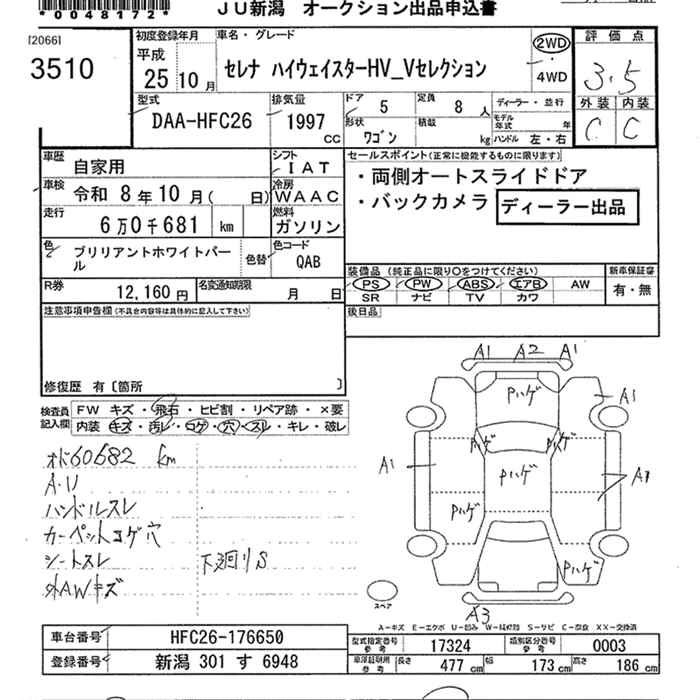 *0048172*
JU新潟 オークション出品申込書
[2066]
3510
初度登録年月
平成
25 10月
車名・グレード
セレナ ハイウェイスターHV_Vセレクション
2WD
4WD
評価点
3.5
外装 内装
C C
型式
DAA-HFC26
排気量
1997 CC
ドア
5
定員
8 人
形状
ワゴン
積載
kg
ディーラー・並行
モデル年式 年
ハンドル 左・右
車歴
自家用
シフト
IAT
車検
令和 8年10月( 日)
冷房
WAAC
走行
6万0千681 km
燃料
ガソリン
色
ブリリアントホワイトパール
色替
色コード
QAB
R券
12,160円
名変通知期限
月 日
セールスポイント(正常に機能するものに限ります)
・両側オートスライドドア
・バックカメラ ディーラー出品
装備品 (純正品に限り○をつけてください)
PS PW ABS エアB AW
SR ナビ TV カワ
新車保証書
有・無
後日品
注意事項申告欄(不具合内容等は具体的に記入して下さい)
修復歴 有〔箇所 〕
検査員記入欄
FW キズ・飛石・ヒビ割・リペア跡・×要
内装 キズ・汚レ・コゲ・穴・スレ・キレ・破レ
オド60682 km
A・U
ハンドルスレ
カーペットコゲ穴
シートスレ 下廻りS
外AWキズ
A1 A2 A1
Pハゲ
A1
Pハゲ Pハゲ
A1 Pハゲ A1
Pハゲ
Pハゲ
スペア
A3
A-キズ E-エクボ U-凹み W-補修跡 S-サビ C-腐食 XX-交換済
車台番号 HFC26-176650
登録番号 新潟 301 す 6948
型式指定番号 参考 17324
類別区分番号 参考 0003
車庫証明用 参考
長さ 477 cm
幅 173 cm
高さ 186 cm